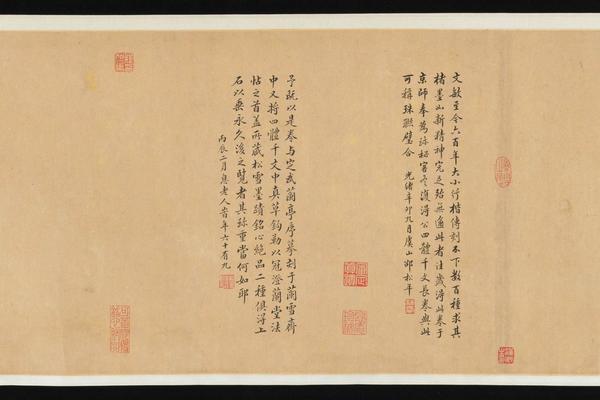 文敏至今六百年大小行楷傳刻不下數百種求其
楮墨如新精神完足殆無逾此者往歲得此卷于
京師奉為秘客復得公四體千文長卷與此
可稱珠聯璧合 光緒辛卯九月虞山邵松年
予既以是卷与定武蘭亭序摹刻于蘭雪齋
中又將四體千文中真草鉤勒以冠澄蘭堂法
帖之首蓋所藏松雪墨蹟銘心絕品二種俱得上
石以垂永久後之覽者其珍重當何如耶
丙辰二月息老人旹年六十有九